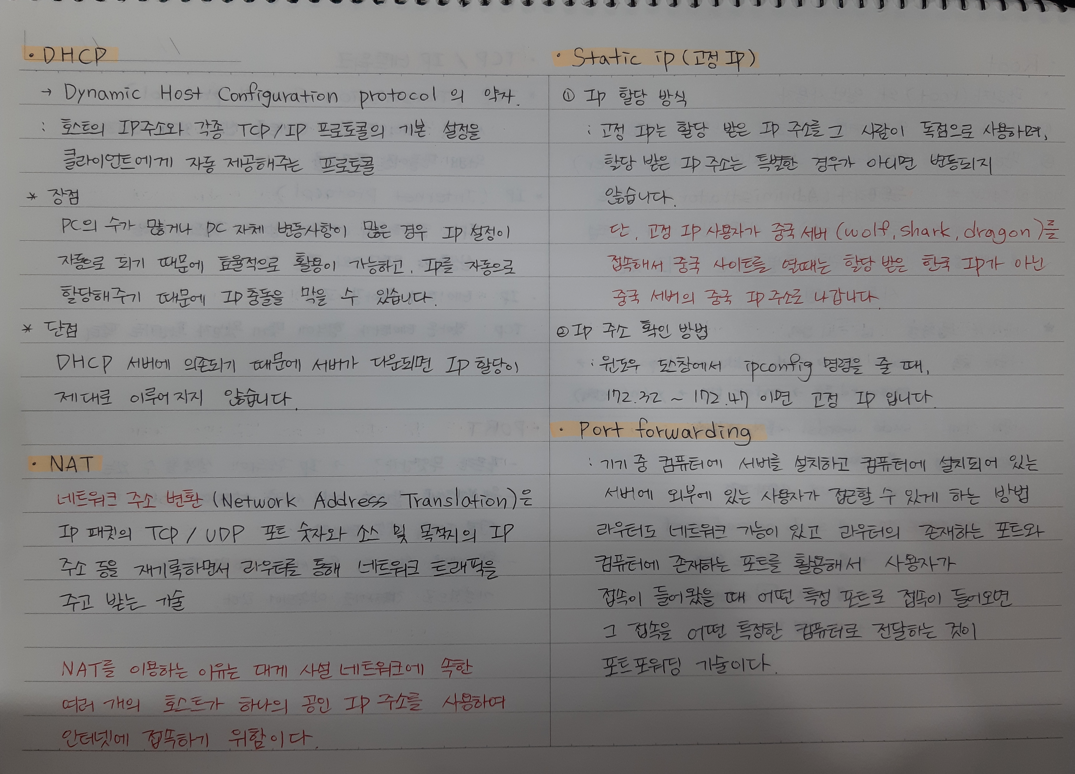 · DHCP
→ Dynamic Host Configuration protocol 의 약자.
: 호스트의 IP주소와 각종 TCP/IP 프로토콜의 기본 설정을
클라이언트에게 자동 제공해주는 프로토콜
* 장점
PC의 수가 많거나 PC 자체 변동사항이 많은 경우 IP 설정이
자동으로 되기 때문에 효율적으로 활용이 가능하고, IP를 자동으로
할당해주기 때문에 IP 충돌을 막을 수 있습니다.
* 단점
DHCP 서버에 의존되기 때문에 서버가 다운되면 IP 할당이
제대로 이루어지지 않습니다.
· NAT
네트워크 주소 변환 (Network Address Translation)은
IP 패킷의 TCP / UDP 포트 숫자와 소스 및 목적지의 IP
주소 등을 재기록하면서 라우터를 통해 네트워크 트래픽을
주고 받는 기술
NAT를 이용하는 이유는 대게 사설 네트워크에 속한
여러 개의 호스트가 하나의 공인 IP 주소를 사용하여
인터넷에 접속하기 위함이다.
· Static ip (고정 IP)
① IP 할당 방식
: 고정 IP는 할당 받은 IP 주소를 그 사람이 독점으로 사용하며,
할당 받은 IP 주소는 특별한 경우가 아니면 변동되지
않습니다.
단, 고정 IP 사용자가 중국 서버 (wolf, shark, dragon)를
접속해서 중국 사이트를 열때는 할당 받은 한국 IP가 아닌
중국 서버의 중국 IP 주소로 나갑니다
② IP 주소 확인 방법
: 윈도우 도스창에서 ipconfig 명령을 줄 때,
172.32 ~ 172.47 이면 고정 IP 입니다.
· Port forwarding
: 기기 중 컴퓨터에 서버를 설치하고 컴퓨터에 설치되어 있는
서버에 외부에 있는 사용자가 접근할 수 있게 하는 방법
라우터도 네트워크 기능이 있고 라우터의 존재하는 포트와
컴퓨터에 존재하는 포트를 활용해서 사용자가
접속이 들어왔을 때 어떤 특정 포트로 접속이 들어오면
그 접속을 어떤 특정한 컴퓨터로 전달하는 것이
포트포워딩 기술이다.